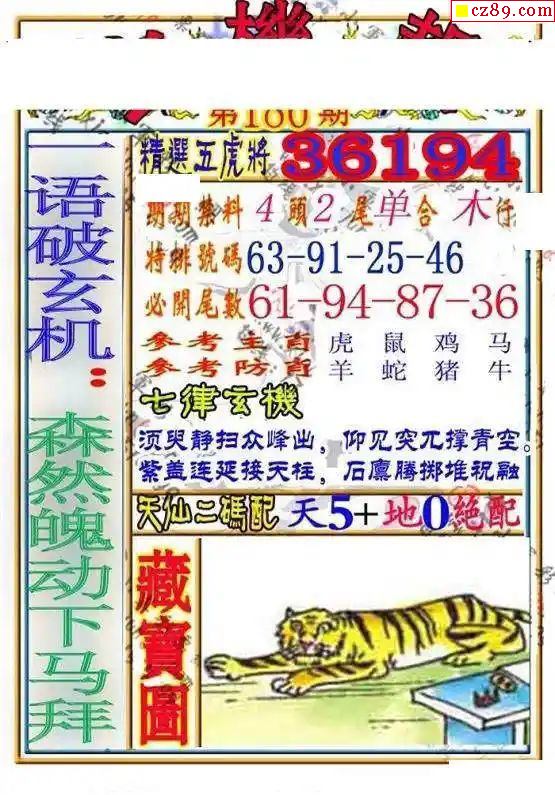 cz89.com
機
第180期
一语破玄机：森然魄动下马拜
精選五虎將 36194
期期禁料 4 頭 2 尾 单合 木行
特排號碼 63-91-25-46
必開尾數 61-94-87-36
參考主肖 虎 鼠 鸡 马
參考防肖 羊 蛇 猪 牛
七律玄機
须臾静扫众峰出，仰见突兀撑青空。
紫盖连延接天柱，石廪腾掷堆祝融
天仙二碼配 天5+地0絕配
藏寶圖